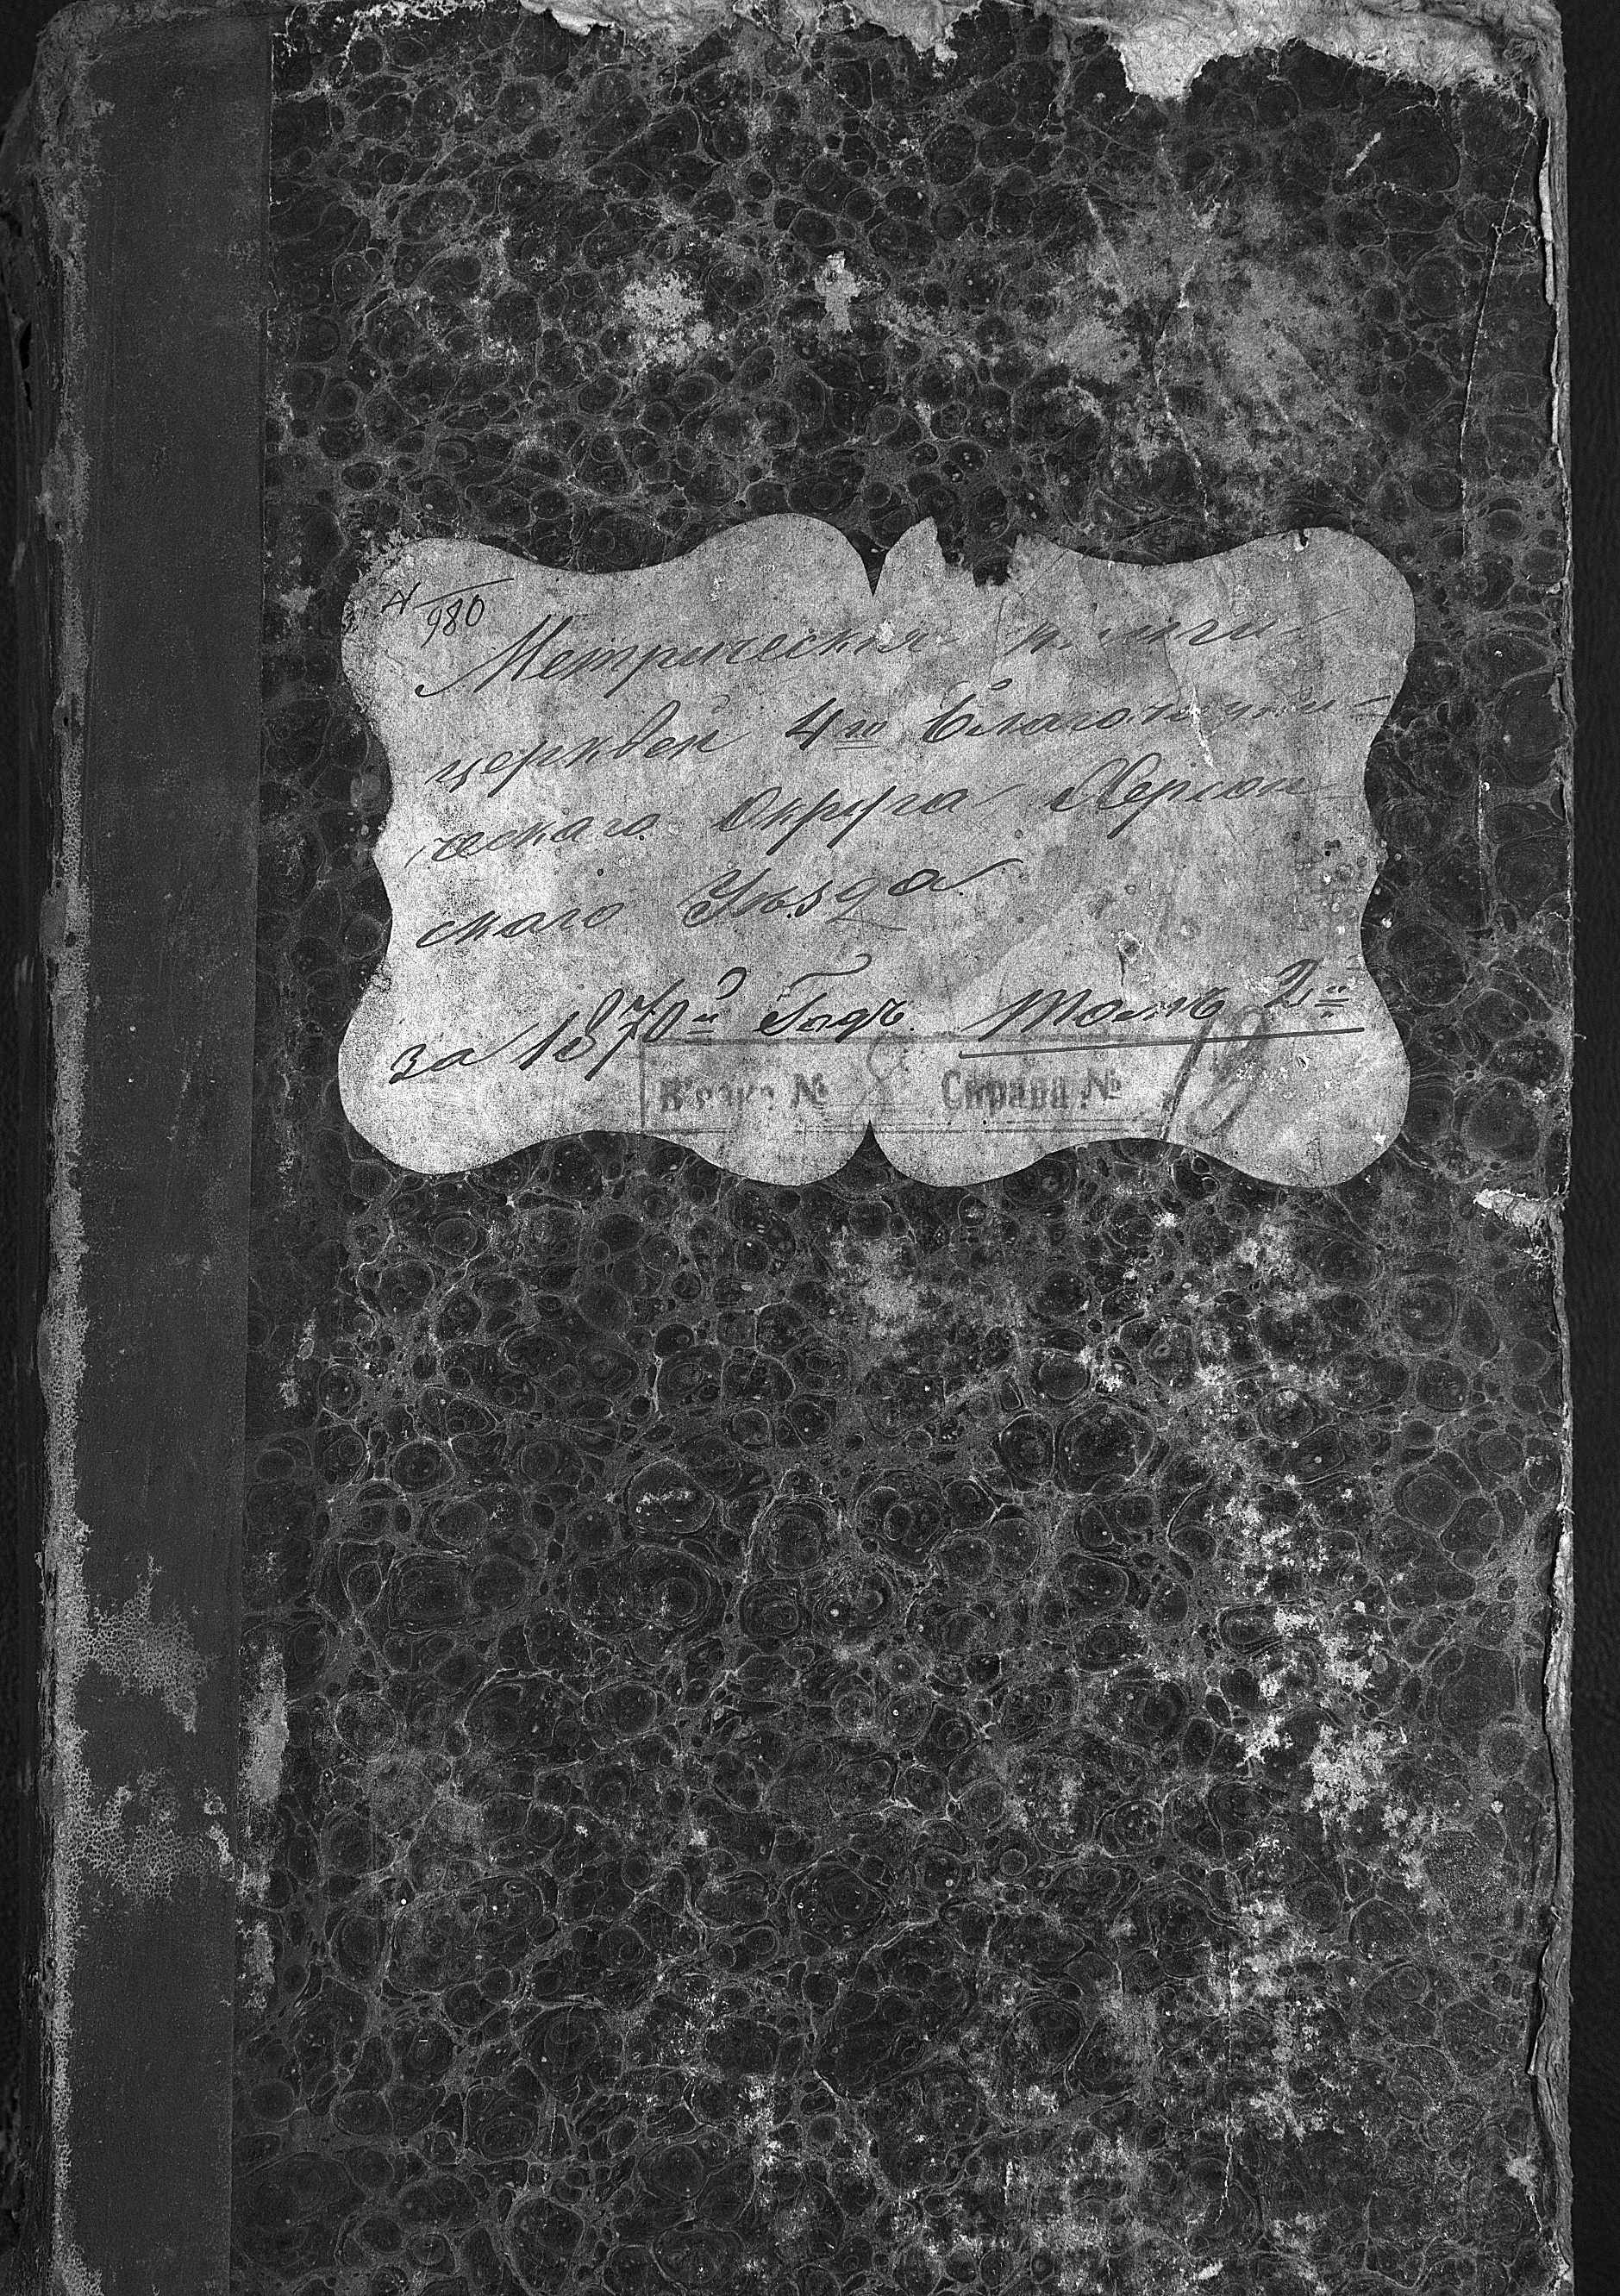 N 980
Метрическия книги
церквей 4го Благочинни-
ческаго Округа Херсон-
скаго Уѣзда
за 1870й Годъ. Томъ 2й
В'язка № Справа №